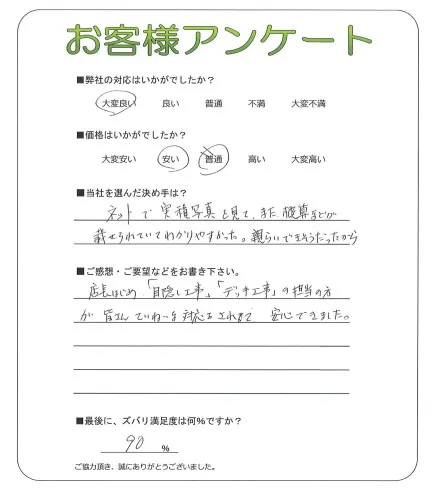 お客様アンケート
■弊社の対応はいかがでしたか？
大変良い 良い 普通 不満 大変不満
■価格はいかがでしたか？
大変安い 安い 普通 高い 大変高い
■当社を選んだ決め手は？
ネットで実積写真を見て、また概算などが
載せられていてわかりやすかった。親らいできそうだったから
■ご感想・ご要望などをお書き下さい。
店長はじめ「目隠し工事」、「デッキ工事」の担当の方
が皆さんていねいな対応をされて安心できました。
■最後に、ズバリ満足度は何%ですか？
90 %
ご協力頂き、誠にありがとうございました。